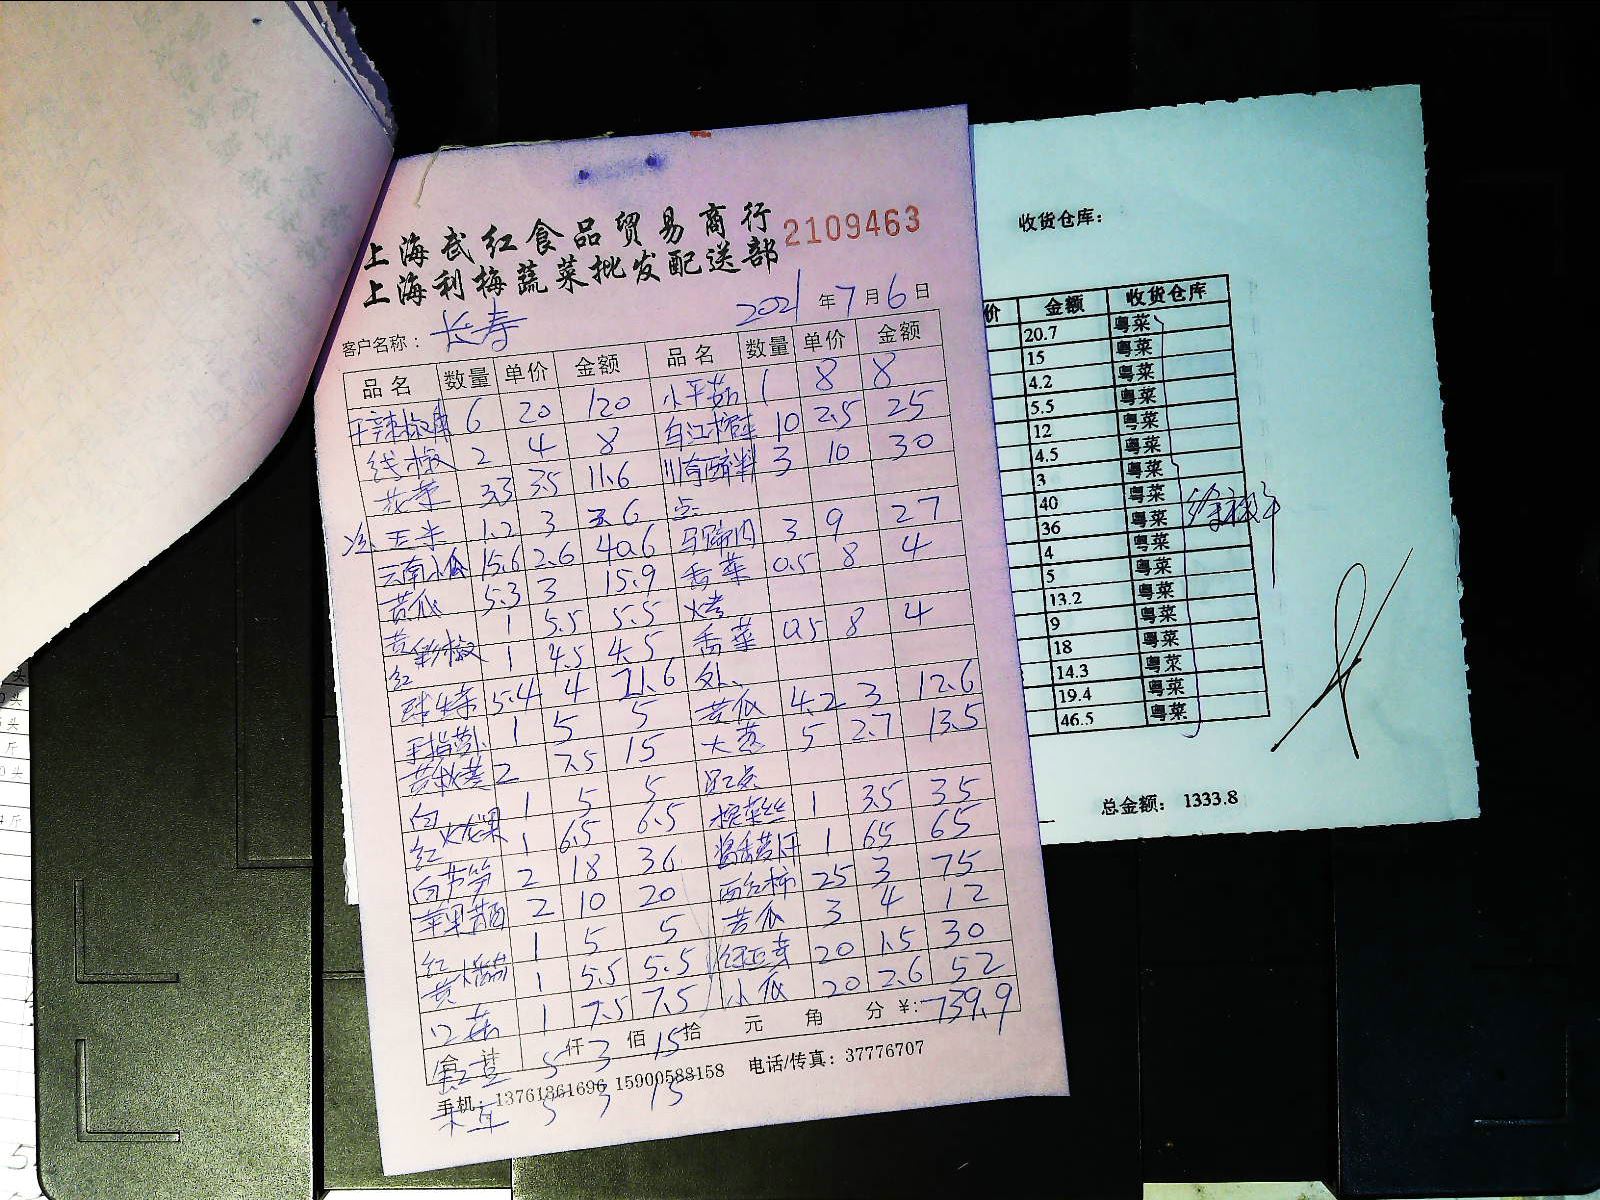 上海武红食品贸易商行
上海利梅蔬菜批发配送部
2109463
2021年7月6日
客户名称：长寿
品名 数量 单价 金额 品名 数量 单价 金额
干辣椒 6 20 120 小平菇 1 8 8
线椒 2 4 8 10 2.5 25
花菜 3.3 3.5 11.6 3 10 30
玉米 1.2 3 3.6 点
云南小瓜 15.6 2.6 40.6 马蹄肉 3 9 27
苦瓜 5.3 3 15.9 香菜 0.5 8 4
黄彩椒 1 5.5 5.5 火考
红 1 4.5 4.5 香菜 0.5 8 4
球生菜 5.4 4 21.6
手指萝卜 1 5 5 苦瓜 4.2 3 12.6
2 7.5 15 大葱 5 2.7 13.5
白火龙果 1 5 5
红 1 6.5 6.5 榨菜丝 1 35 35
白芦笋 2 18 36 1 65 65
苹果 2 10 20 西红柿 25 3 75
红 1 5 5 苦瓜 3 4 12
黄 1 5.5 5.5 绿豆芽 20 1.5 30
口菇 1 7.5 7.5 小瓜 20 2.6 52
仟 佰 拾 元 角 分 ¥: 739.9
5 3 15
手机：13761361696 15900588158 电话/传真：37776707
5 3 15
收货仓库：
价 金额 收货仓库
20.7 粤菜
15 粤菜
4.2 粤菜
5.5 粤菜
12 粤菜
4.5 粤菜
3 粤菜
40 粤菜
36 粤菜
4 粤菜
5 粤菜
13.2 粤菜
9 粤菜
18 粤菜
14.3 粤菜
19.4 粤菜
46.5 粤菜
总金额： 1333.8